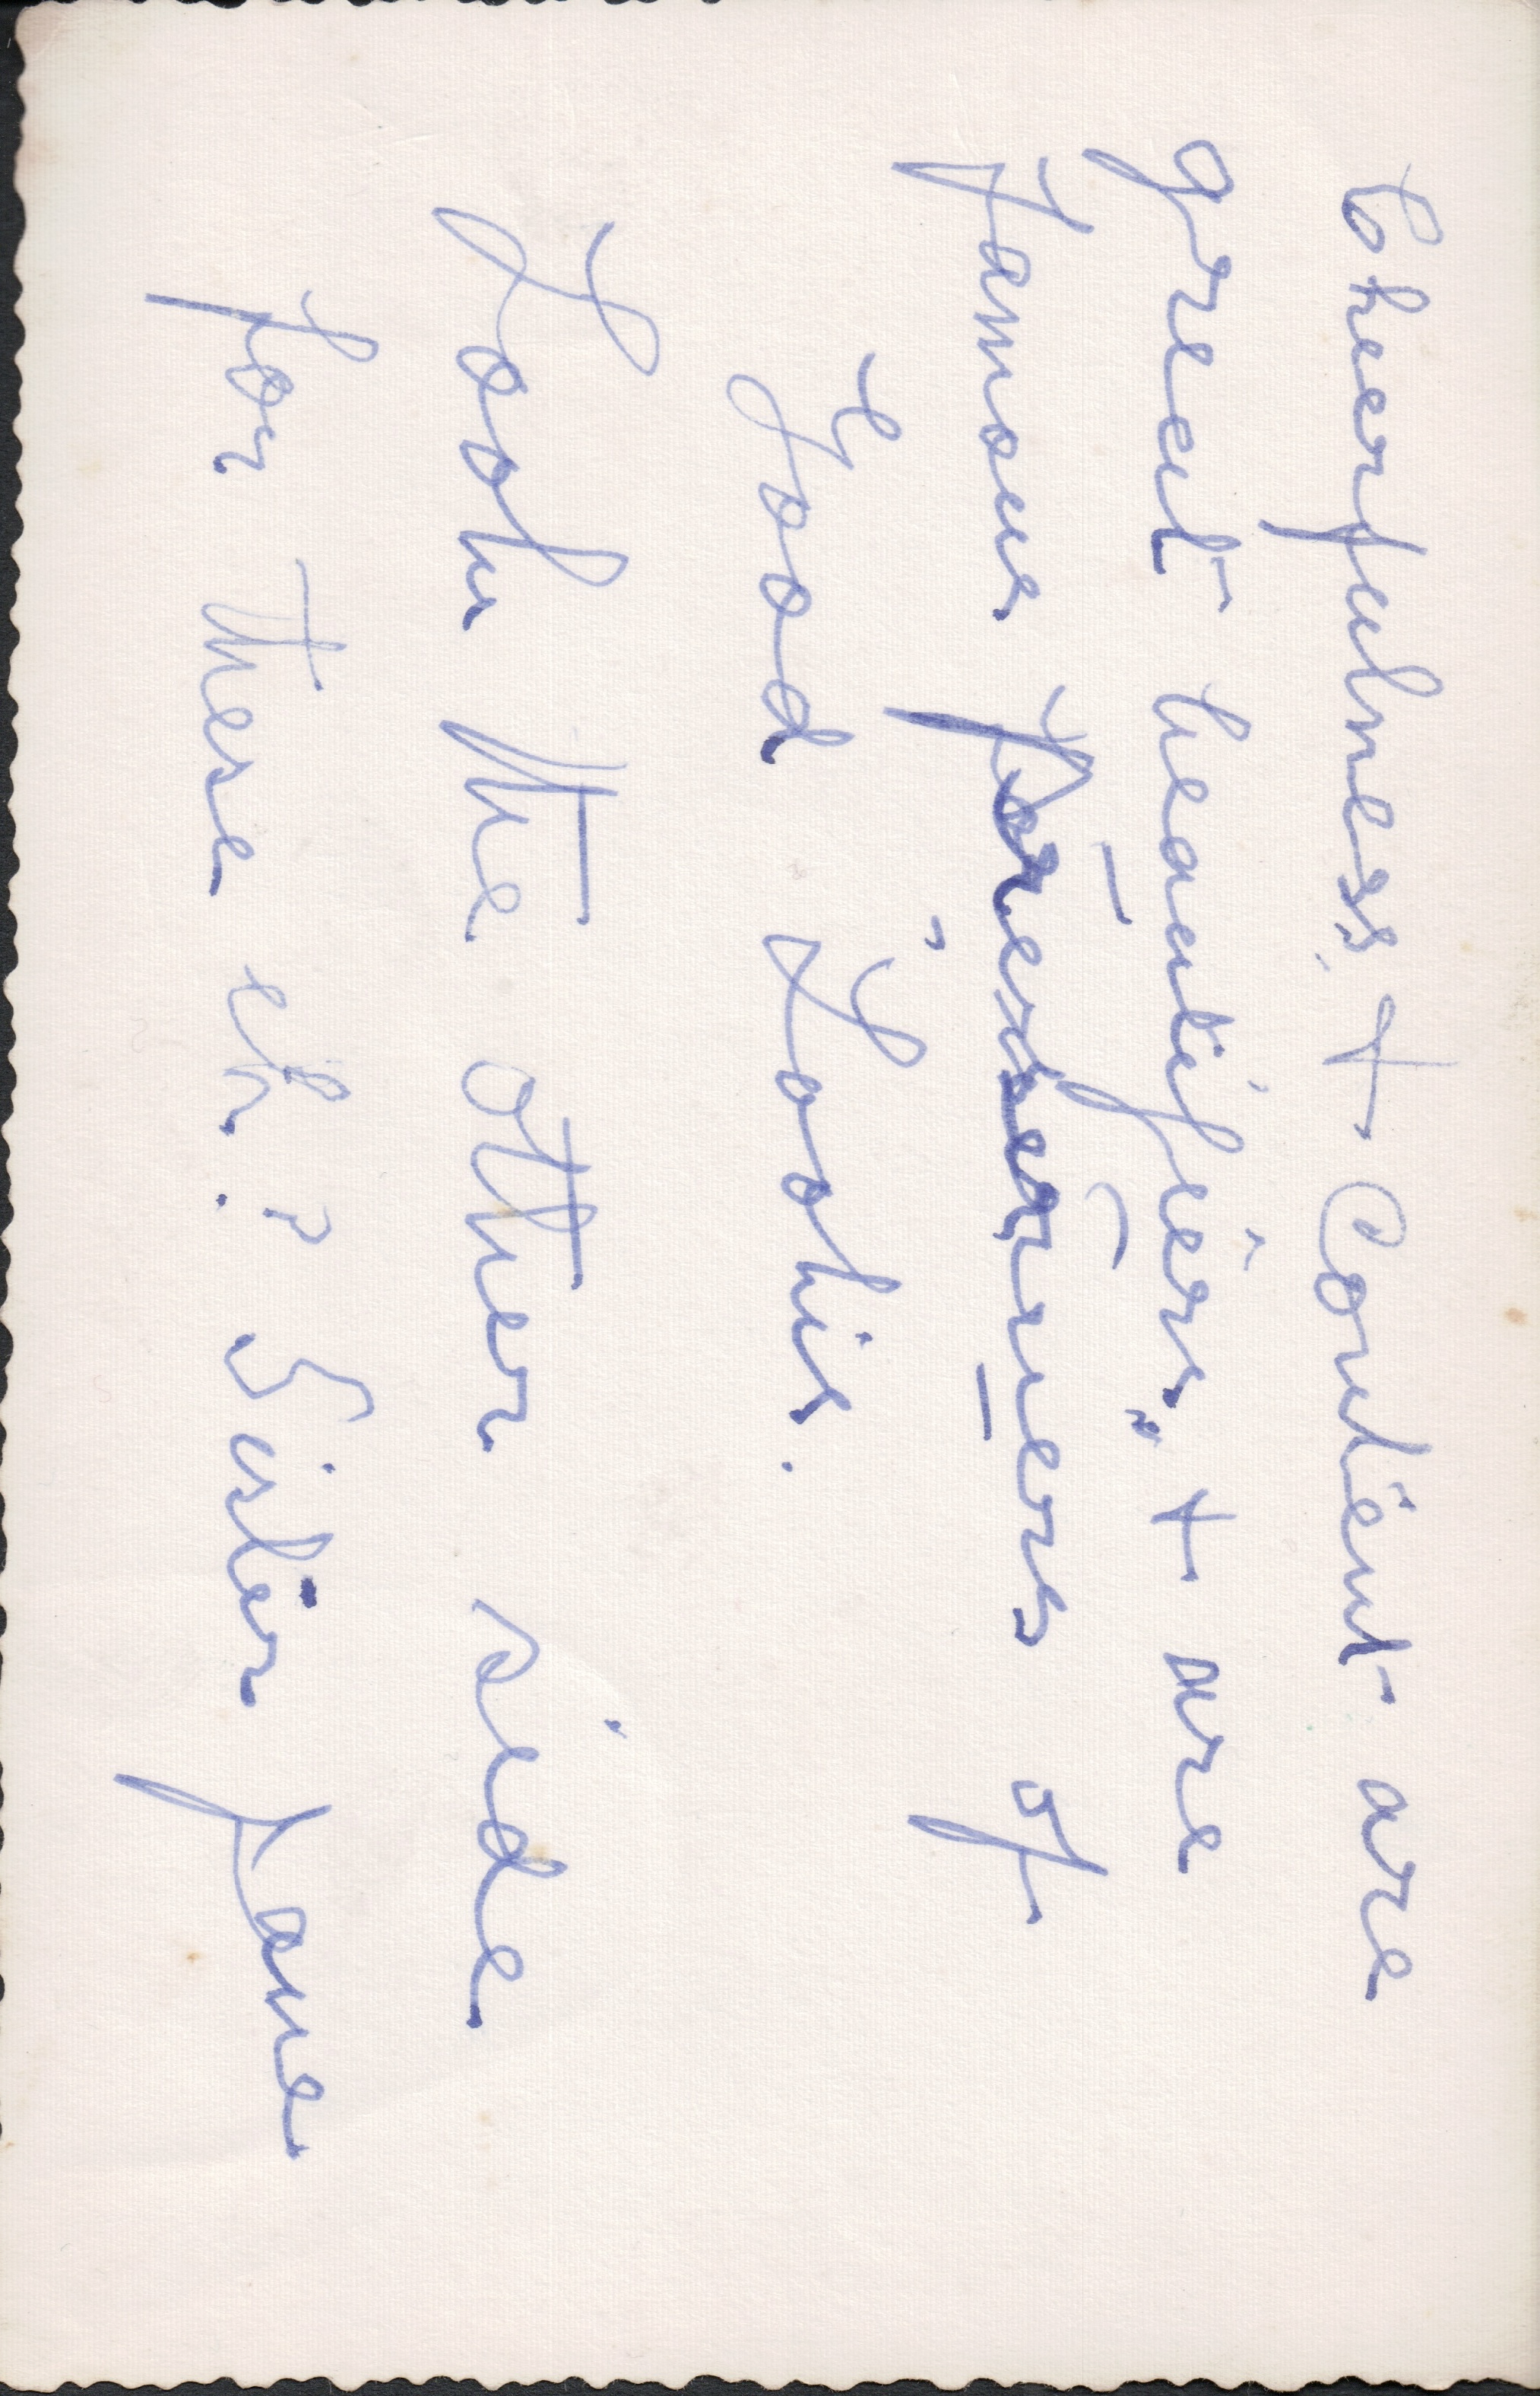 Cheerfulness & Content are
great beautifiers, & are
famous preservers of
Good Looks.
Look the other side
for these eh? Sister Jane